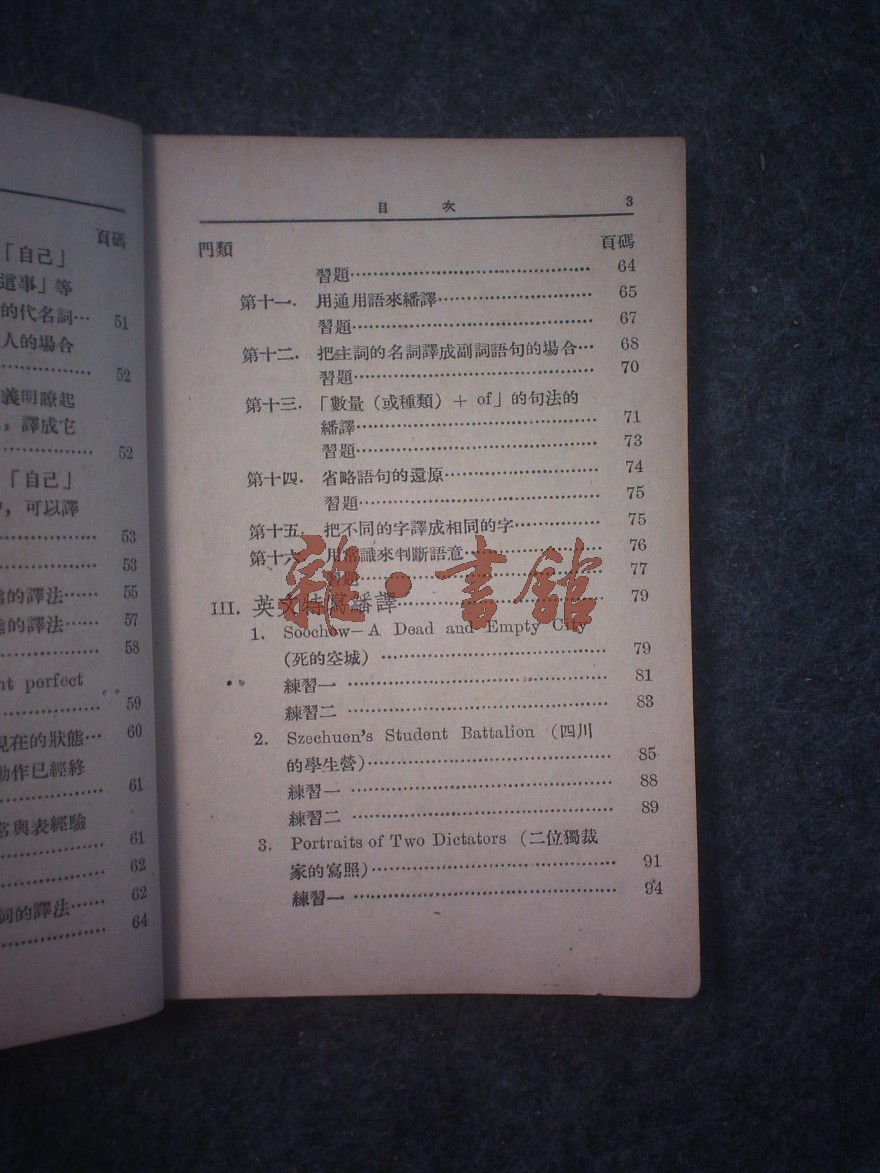 頁碼
「自己」
這事」等
的代名詞… 51
人的場合
52
義明瞭起
，譯成它
52
「自己」
，可以譯
53
53
的譯法…… 55
的譯法…… 57
58
nt perfect
59
現在的狀態… 60
動作已經終
61
常與表經驗
61
62
詞的譯法…… 62
64
目 次 3
門類 頁碼
習題…… 64
第十一． 用通用語來繙譯…… 65
習題…… 67
第十二． 把主詞的名詞譯成副詞語句的場合… 68
習題…… 70
第十三． 「數量（或種類）＋ of」的句法的
繙譯…… 71
習題…… 73
第十四． 省略語句的還原…… 74
習題…… 75
第十五． 把不同的字譯成相同的字…… 75
第十六． 用常識來判斷語意…… 76
習題…… 77
III. 英文特寫繙譯…… 79
1. Soochow—A Dead and Empty City
（死的空城）…… 79
練習一…… 81
練習二…… 83
2. Szechuen's Student Battalion（四川
的學生營）…… 85
練習一…… 88
練習二…… 89
3. Portraits of Two Dictators（二位獨裁
家的寫照）…… 91
練習一…… 94
雜·書館